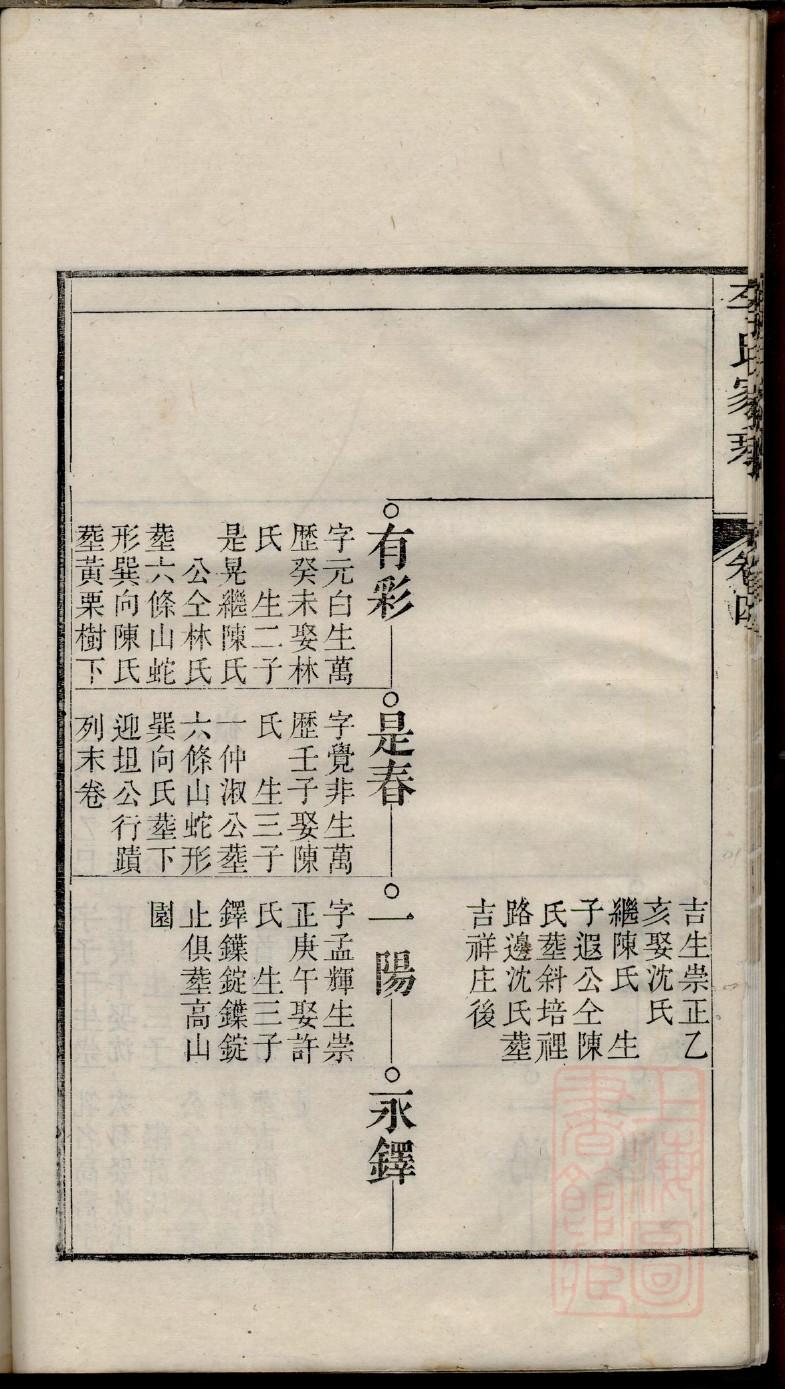 李氏家乘
卷四
吉生崇正乙
亥娶沈氏
繼陳氏　生
子遐公仝陳
氏塟斜培裡
路邊沈氏塟
吉祥庄後
有彩
字元白生萬
歷癸未娶林
氏　生二子
是晃繼陳氏
公仝林氏
塟六條山蛇
形巽向陳氏
塟黃栗樹下
是春
字覺非生萬
歷壬子娶陳
氏　生三子
一仲淑公塟
六條山蛇形
巽向氏塟下
迎坦公行蹟
列末卷
一陽
字孟輝生崇
正庚午娶許
氏　生三子
鐸鏷錠鏷錠
止俱塟高山
園
永鐸
上海圖
書館藏